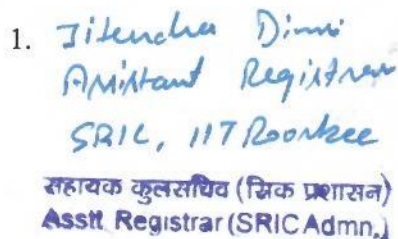 1. Jitendra Dimri
Assistant Registrar
SRIC, IIT Roorkee
सहायक कुलसचिव (सिक प्रशासन)
Asstt. Registrar (SRIC Admn.)